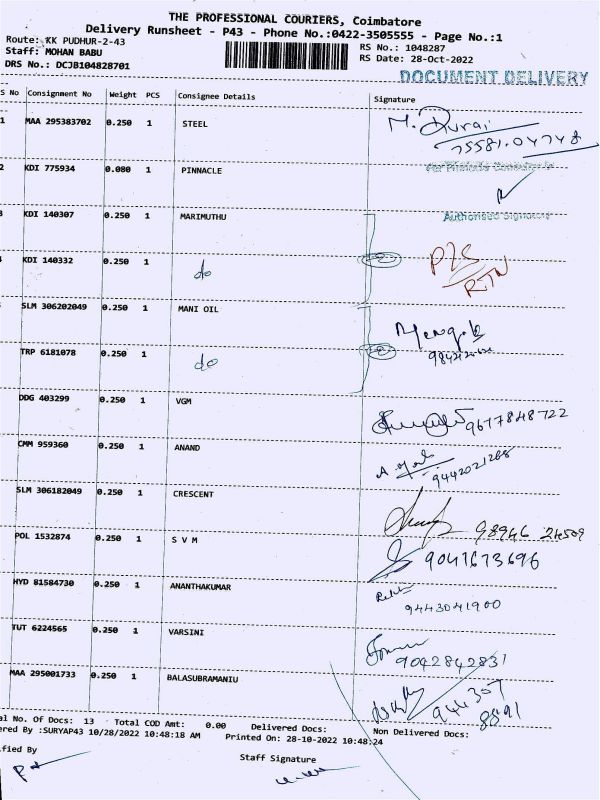 THE PROFESSIONAL COURIERS, Coimbatore
Delivery Runsheet - P43 - Phone No.:0422-3505555 - Page No.:1
Route: KK PUDHUR-2-43
Staff: MOHAN BABU
DRS No.: DCJB104828701
RS No.: 1048287
RS Date: 28-Oct-2022
DOCUMENT DELIVERY
S No Consignment No Weight PCS Consignee Details Signature
1 MAA 295383702 0.250 1 STEEL M. Durai
75581.04748
2 KDI 775934 0.080 1 PINNACLE
Authorised Signatory
3 KDI 140307 0.250 1 MARIMUTHU
KDI 140332 0.250 1 do RTN
SLM 306202049 0.250 1 MANI OIL
TRP 6181078 0.250 1 do
DDG 403299 0.250 1 VGM 9677848722
CMM 959360 0.250 1 ANAND 9442021268
SLM 306182049 0.250 1 CRESCENT 98946 24509
POL 1532874 0.250 1 S V M 9047673696
HYD 81584730 0.250 1 ANANTHAKUMAR
9443041900
TUT 6224565 0.250 1 VARSINI
9042842831
MAA 295001733 0.250 1 BALASUBRAMANIU 944307
8891
al No. Of Docs: 13 Total COD Amt: 0.00 Delivered Docs: Non Delivered Docs:
ered By :SURYAP43 10/28/2022 10:48:18 AM Printed On: 28-10-2022 10:48:24
ified By Staff Signature